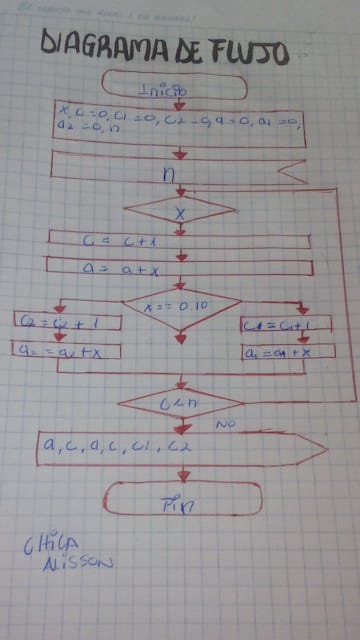 DIAGRAMA DE FLUJO
Inicio
x, c=0, c1=0, c2=0, a=0, a1=0,
a2=0, n
n
x
c = c+1
a = a+x
x == 0.10
c2 = c2 + 1
c1 = c1+1
a2 = a2+x
a1 = a1+x
c<n
NO
a, c, a, c, c1, c2
Fin
CHICA
ALISSON